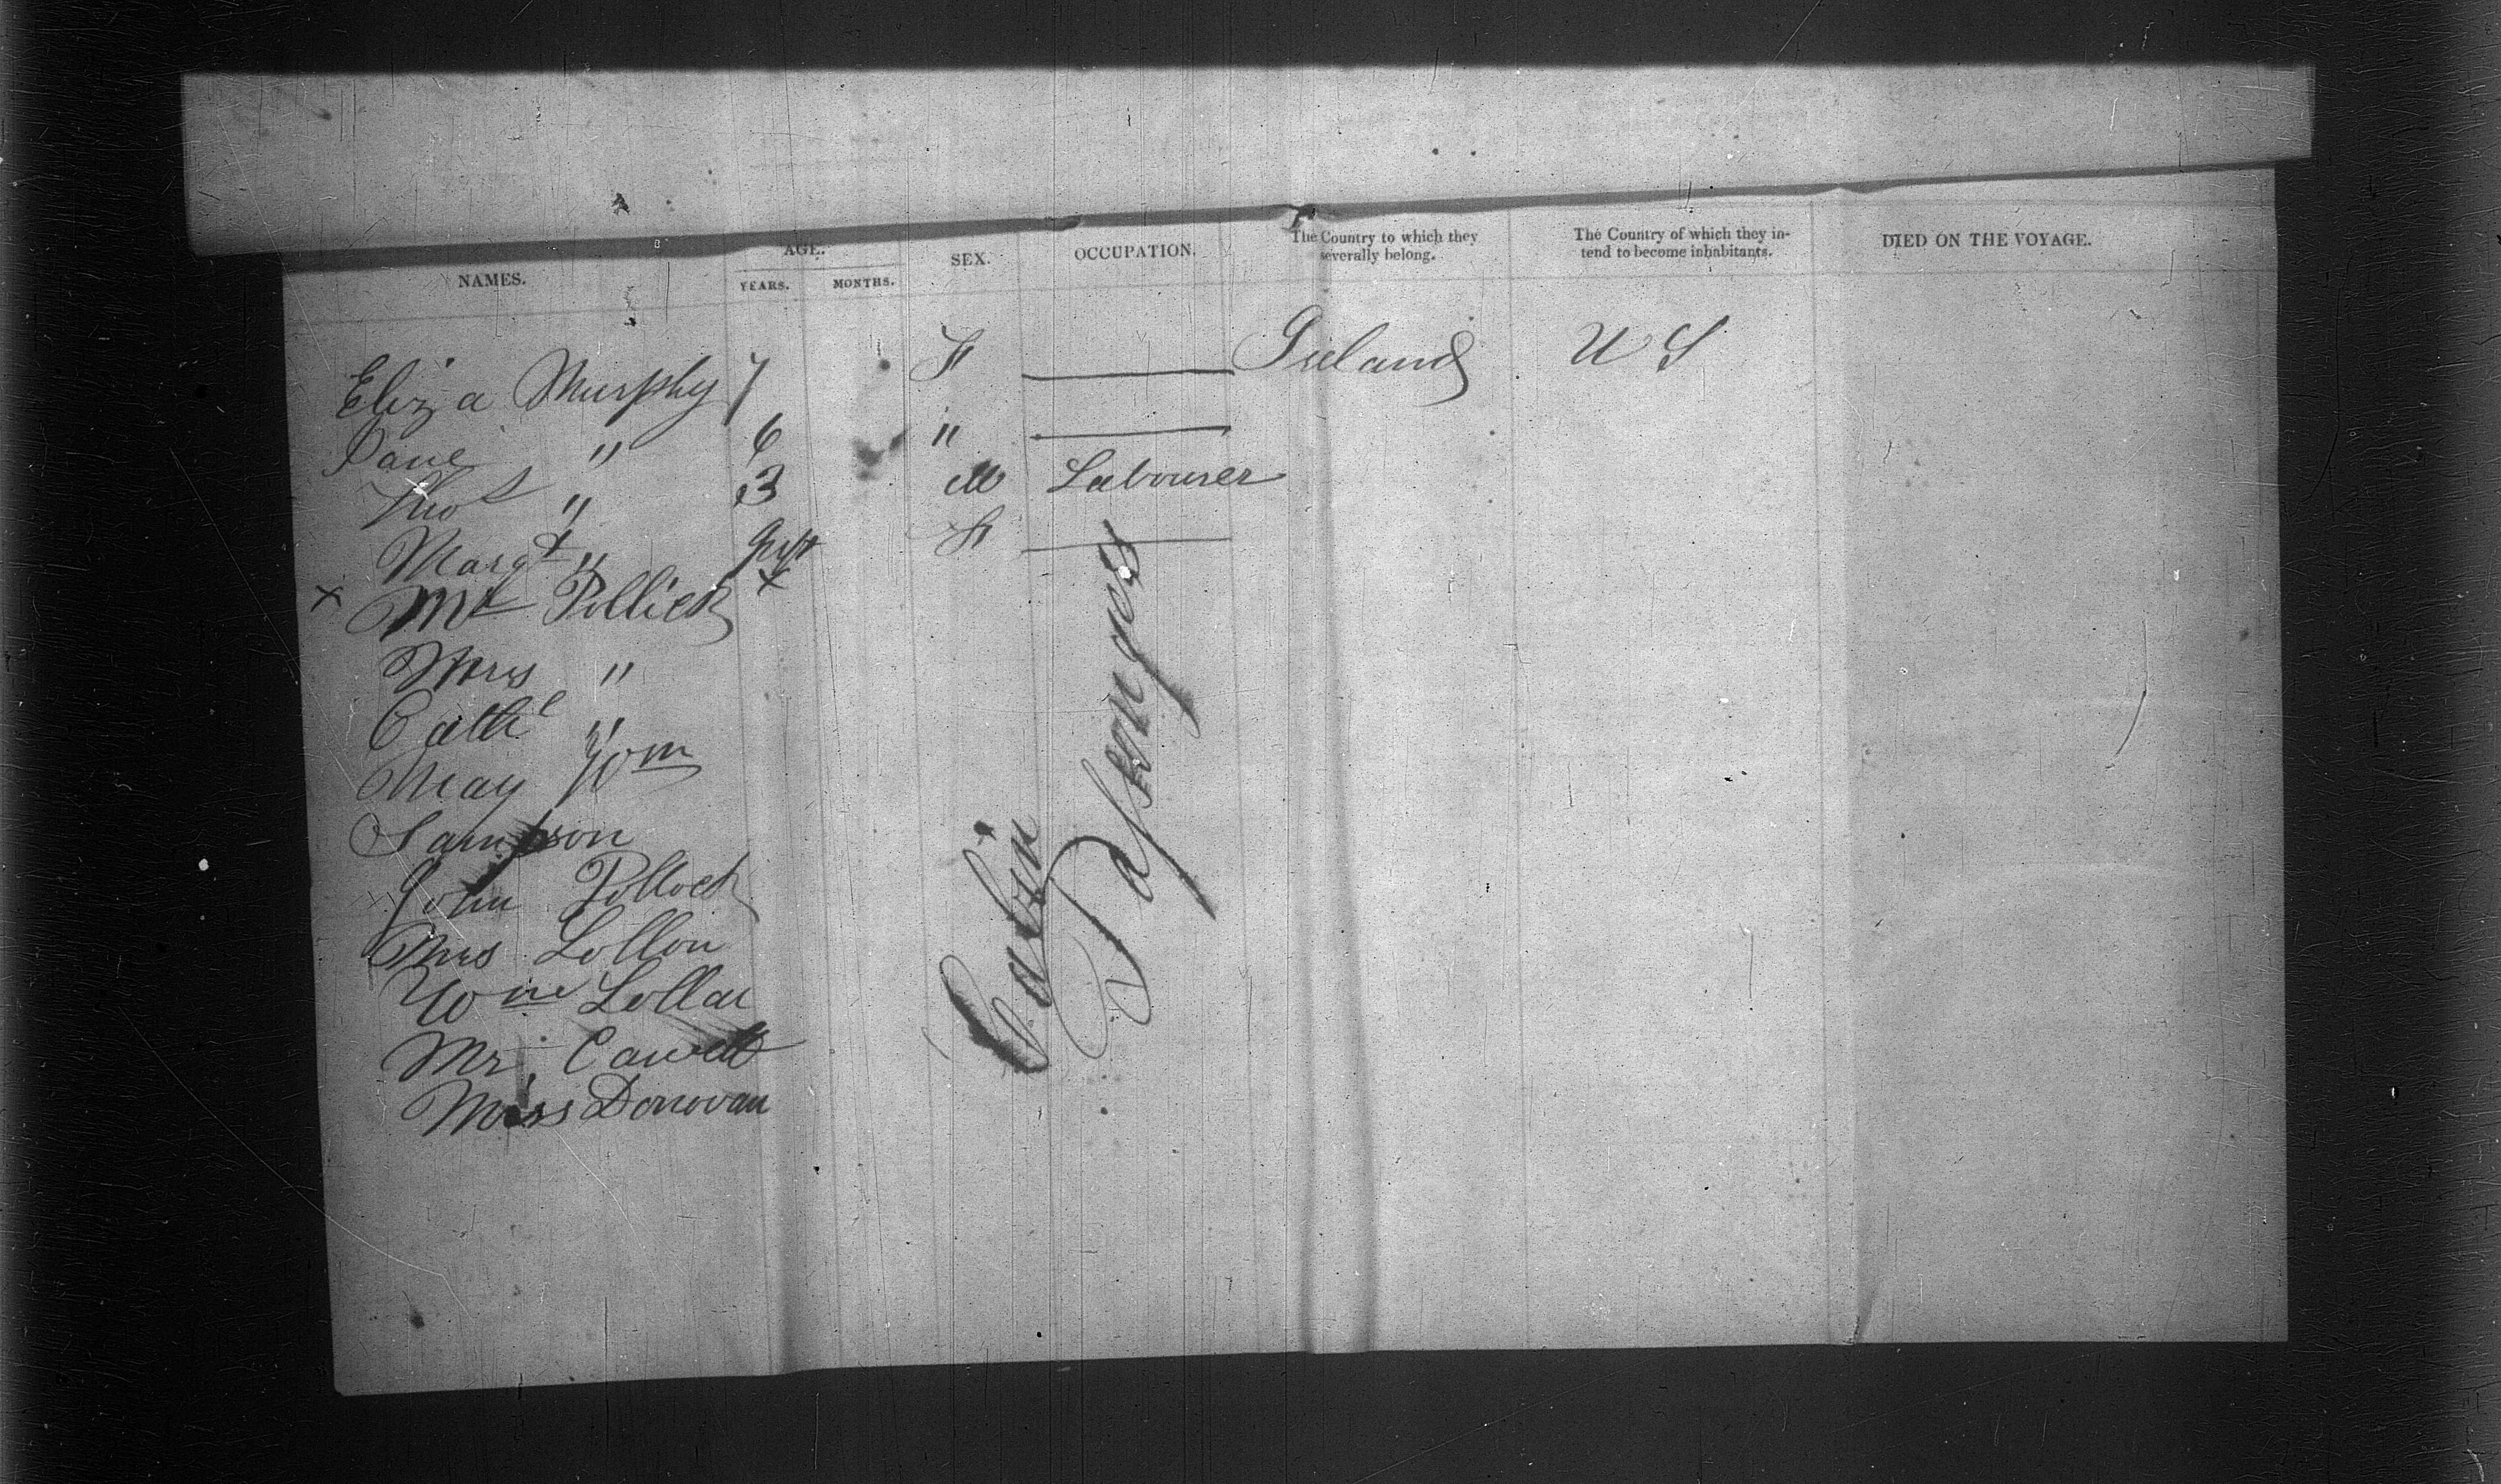 NAMES. AGE. YEARS. MONTHS. SEX. OCCUPATION. The Country to which they severally belong. The Country of which they intend to become inhabitants. DIED ON THE VOYAGE.
Eliza Murphy 7 F — Ireland U S
Jane " 6 " —
Thos " 3 M Labourer
Margt " Inft F —
x Mr Pollick x
Mrs "
Cathe "
May Wm
Sampson
John Pollock
Mrs Lollon
Wm Lollar
Mr,
Miss Donovan
Cabin Passenges